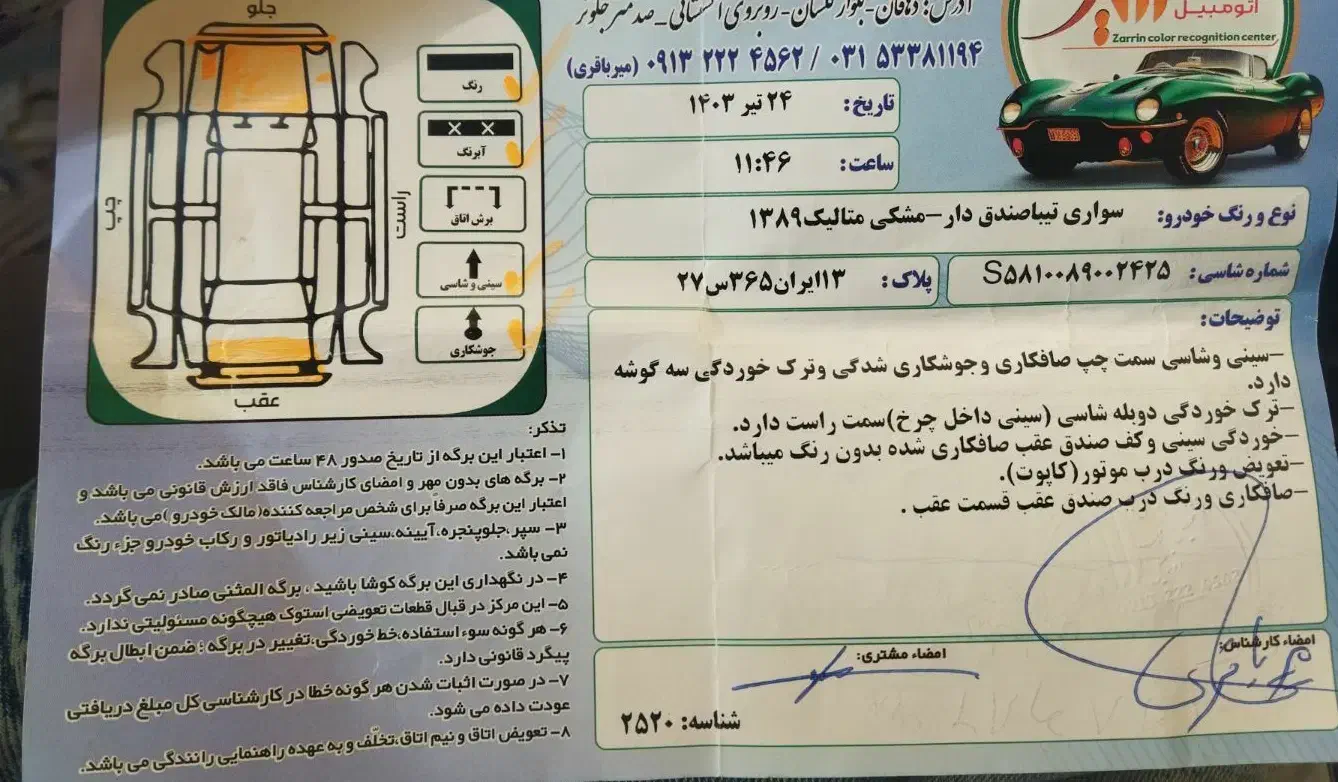 اتومبیل
Zarrin color recognition center
آدرس: دهاقان-بلوار گلستان-روبروی
۰۹۱۳ ۲۲۲ ۴۵۶۲ / ۰۳۱ ۵۳۳۸۱۱۹۴ (میرباقری)
تاریخ: ۲۴ تیر ۱۴۰۳
ساعت: ۱۱:۴۶
نوع و رنگ خودرو: سواری تیباصندق دار-مشکی متالیک۱۳۸۹
شماره شاسی: S۵۸۱۰۰۸۹۰۰۲۴۲۵
پلاک: ۱۳ایران۳۶۵س۲۷
توضیحات:
-سینی وشاسی سمت چپ صافکاری وجوشکاری شدگی وترک خوردگی سه گوشه
دارد.
-ترک خوردگی دوبله شاسی (سینی داخل چرخ)سمت راست دارد.
-خوردگی سینی وکف صندق عقب صافکاری شده بدون رنگ میباشد.
-تعویض ورنگ درب موتور(کاپوت).
-صافکاری ورنگ درب صندق عقب قسمت عقب .
امضاء کارشناس:
امضاء مشتری:
شناسه: ۲۵۲۰
جلو
چپ
راست
عقب
رنگ
آبرنگ
برش اتاق
سینی و شاسی
جوشکاری
تذکر:
۱- اعتبار این برگه از تاریخ صدور ۴۸ ساعت می باشد.
۲- برگه های بدون مهر و امضای کارشناس فاقد ارزش قانونی می باشد و
اعتبار این برگه صرفاً برای شخص مراجعه کننده(مالک خودرو)می باشد.
۳- سپر،جلوپنجره،آیینه،سینی زیر رادیاتور و رکاب خودرو جزء رنگ
نمی باشد.
۴- در نگهداری این برگه کوشا باشید ، برگه المثنی صادر نمی گردد.
۵- این مرکز در قبال قطعات تعویضی استوک هیچگونه مسئولیتی ندارد.
۶- هر گونه سوء استفاده،خط خوردگی،تغییر در برگه ؛ ضمن ابطال برگه
پیگرد قانونی دارد.
۷- در صورت اثبات شدن هر گونه خطا در کارشناسی کل مبلغ دریافتی
عودت داده می شود.
۸- تعویض اتاق و نیم اتاق،تخلّف و به عهده راهنمایی رانندگی می باشد.